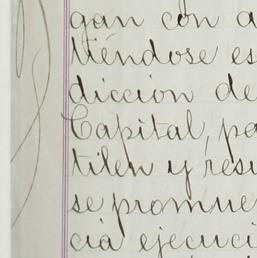 gan con a
tiéndose es
diccion de
Capital, pa
tilen y resu
se promue
cia ejecuci